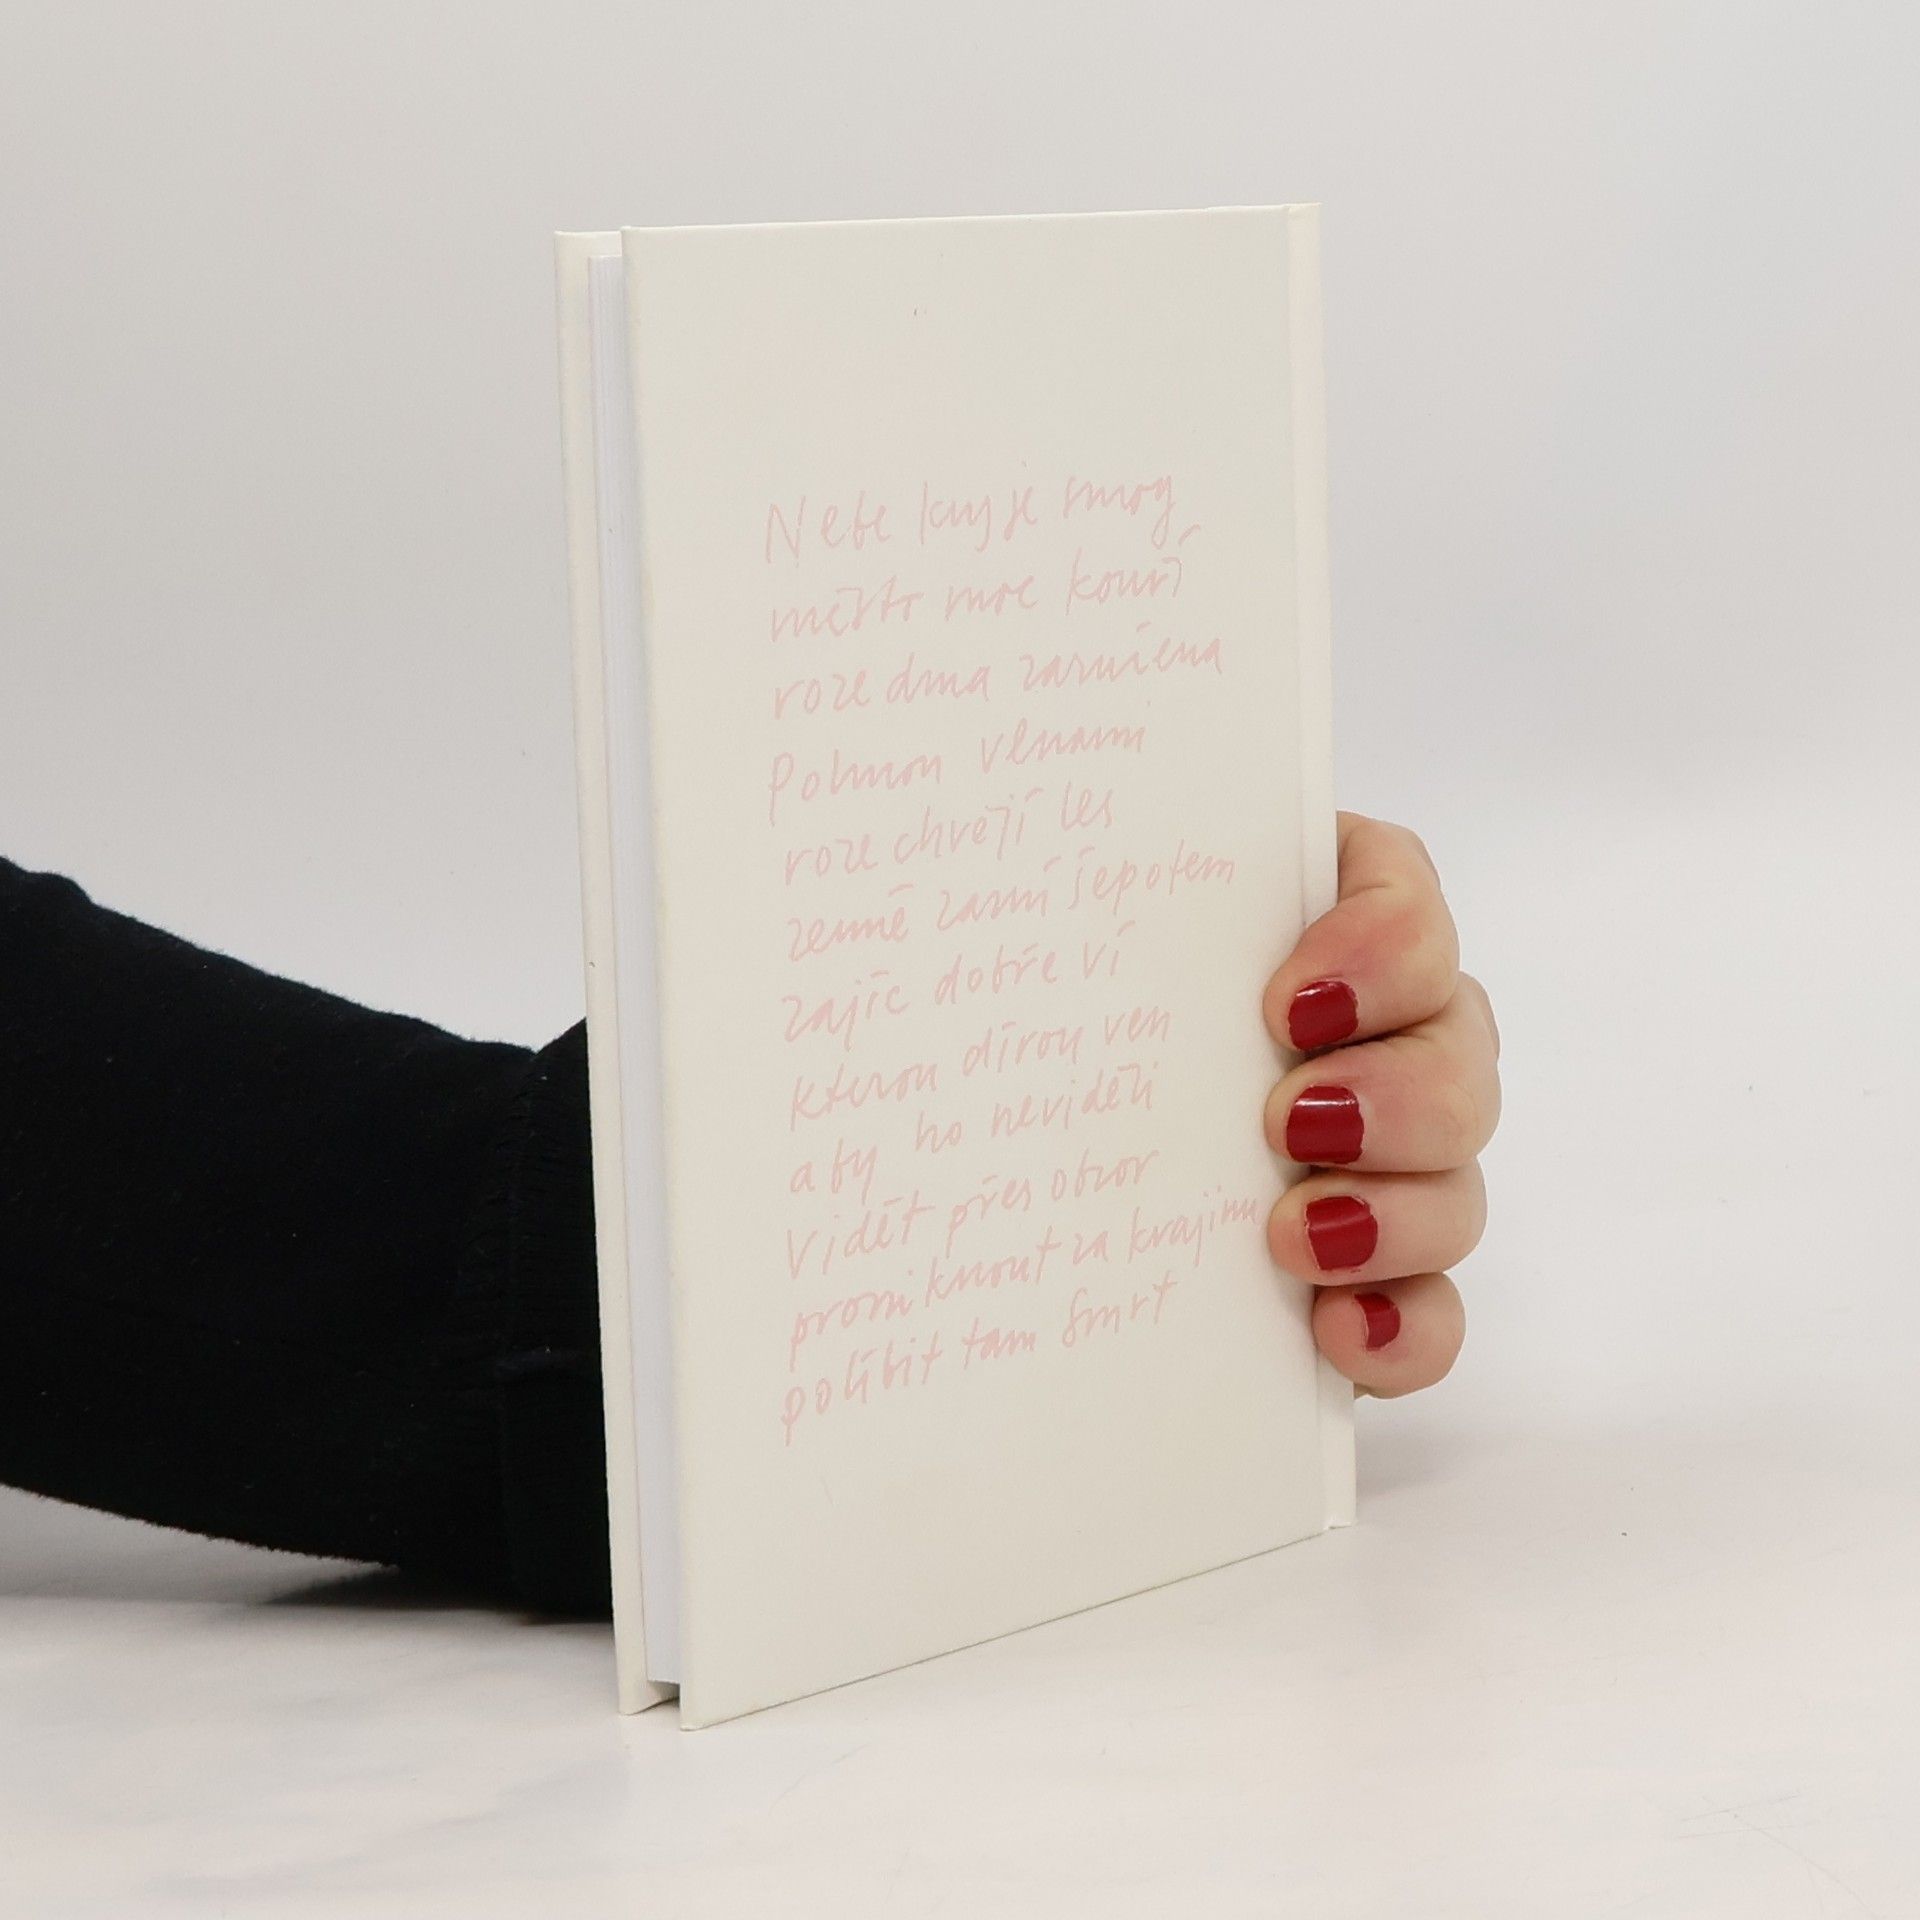 Nebe kryje smog
město moře kouří
roze dma zarušena
Polmou vlnami
roze chvějí les
země zasní šepotem
zajíc dobře ví
kterou dírou ven
aby ho neviděli
Vidět přes obzor
proniknout za krajinu
políbit tam Smrt